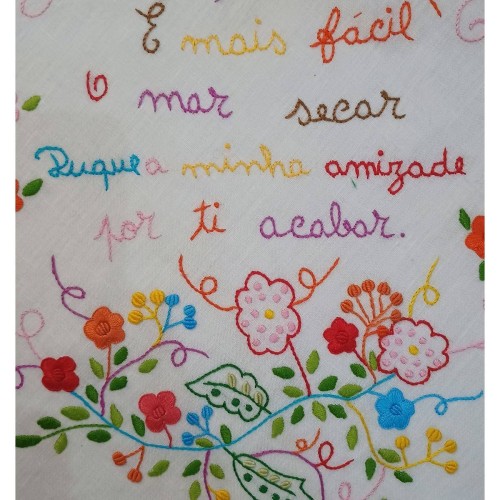 E mais fácil
O mar secar
Duque a minha amizade
por ti acabar.